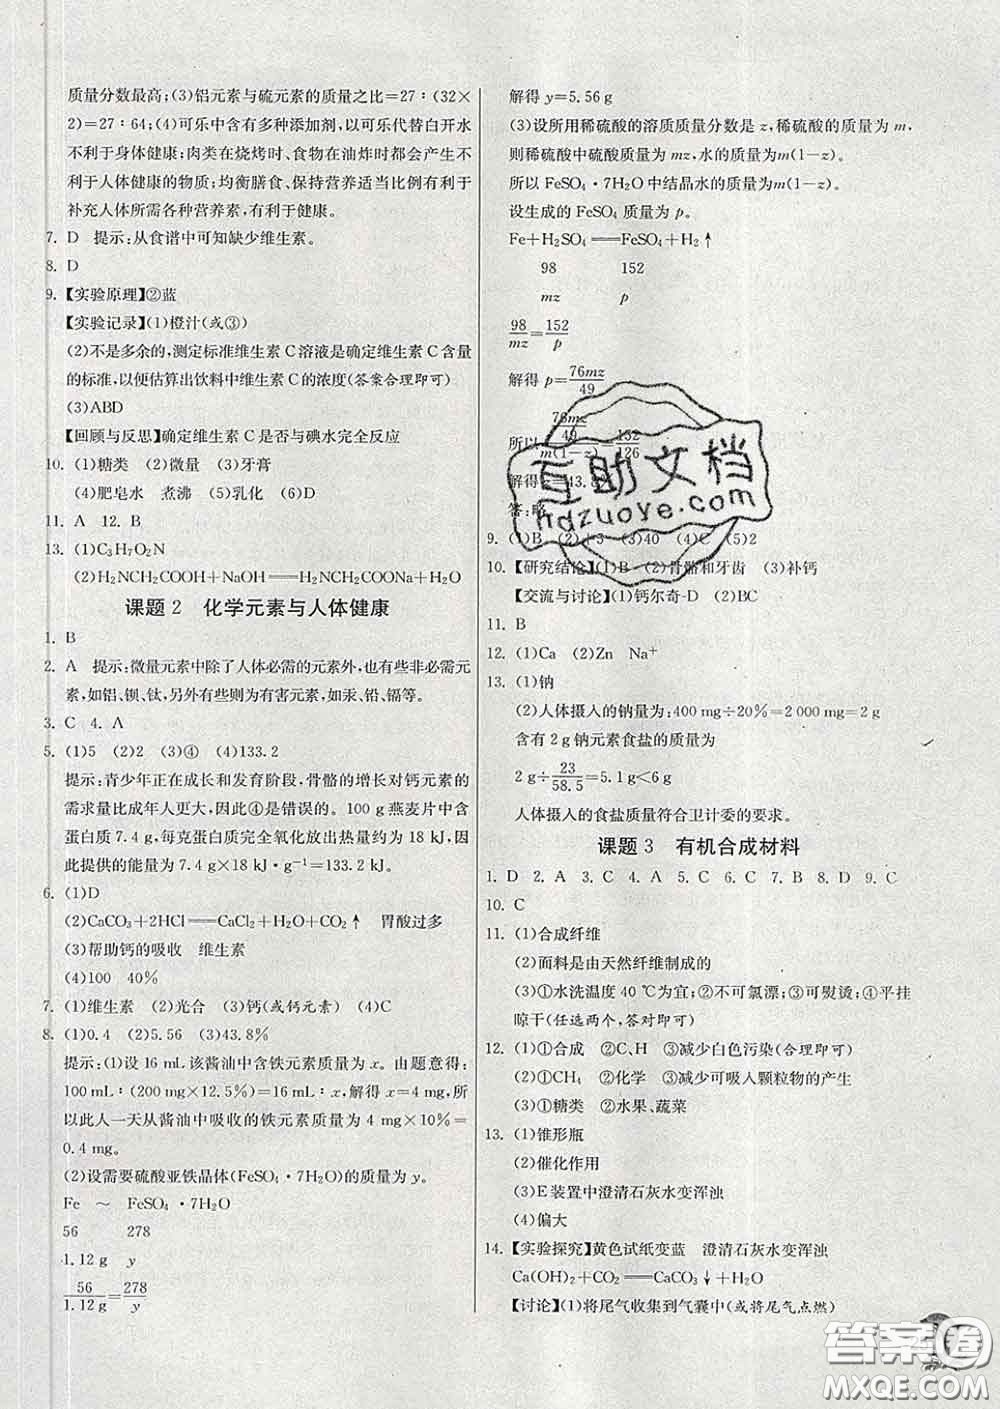 质量分数最高;(3)铝元素与硫元素的质量之比=27∶(32×
2)=27∶64;(4)可乐中含有多种添加剂,以可乐代替白开水
不利于身体健康;肉类在烧烤时、食物在油炸时都会产生不
利于人体健康的物质;均衡膳食、保持营养适当比例有利于
补充人体所需各种营养素,有利于健康。
7. D 提示:从食谱中可知缺少维生素。
8. D
9. 【实验原理】②蓝
【实验记录】(1)橙汁(或③)
(2)不是多余的,测定标准维生素C溶液是确定维生素C含量
的标准,以便估算出饮料中维生素C的浓度(答案合理即可)
(3)ABD
【回顾与反思】确定维生素C是否与碘水完全反应
10. (1)糖类 (2)微量 (3)牙膏
(4)肥皂水 煮沸 (5)乳化 (6)D
11. A 12. B
13. (1)C₃H₇O₂N
(2)H₂NCH₂COOH+NaOH══H₂NCH₂COONa+H₂O
课题2 化学元素与人体健康
1. B
2. A 提示:微量元素中除了人体必需的元素外,也有些非必需元
素,如铝、钡、钛,另外有些则为有害元素,如汞、铅、镉等。
3. C 4. A
5. (1)5 (2)2 (3)④ (4)133.2
提示:青少年正在成长和发育阶段,骨骼的增长对钙元素的
需求量比成年人更大,因此④是错误的。100 g燕麦片中含
蛋白质7.4 g,每克蛋白质完全氧化放出热量约为18 kJ,因
此提供的能量为7.4 g×18 kJ·g⁻¹=133.2 kJ。
6. (1)D
(2)CaCO₃+2HCl══CaCl₂+H₂O+CO₂↑ 胃酸过多
(3)帮助钙的吸收 维生素
(4)100 40%
7. (1)维生素 (2)光合 (3)钙(或钙元素) (4)C
8. (1)0.4 (2)5.56 (3)43.8%
提示:(1)设16 mL该酱油中含铁元素质量为x。由题意得:
100 mL∶(200 mg×12.5%)=16 mL∶x,解得x=4 mg,所
以此人一天从酱油中吸收的铁元素质量为4 mg×10%=
0.4 mg。
(2)设需要硫酸亚铁晶体(FeSO₄·7H₂O)的质量为y。
Fe ~ FeSO₄·7H₂O
56 278
1.12 g y
56/1.12 g=278/y
解得y=5.56 g
(3)设所用稀硫酸的溶质质量分数是z,稀硫酸的质量为m,
则稀硫酸中硫酸质量为mz,水的质量为m(1-z)。
所以FeSO₄·7H₂O中结晶水的质量为m(1-z)。
设生成的FeSO₄质量为p。
Fe+H₂SO₄══FeSO₄+H₂↑
98 152
mz p
98/mz=152/p
解得p=76mz/49
所以 (76mz/49)/m(1-z)=152/126
解得z=43.8%
答:略
9. (1)B (2)+3 (3)40 (4)C (5)2
10. 【研究结论】(1)B (2)骨骼和牙齿 (3)补钙
【交流与讨论】(1)钙尔奇-D (2)BC
11. B
12. (1)Ca (2)Zn Na⁺
13. (1)钠
(2)人体摄入的钠量为:400 mg÷20%=2 000 mg=2 g
含有2 g钠元素食盐的质量为
2 g÷23/58.5=5.1 g<6 g
人体摄入的食盐质量符合卫计委的要求。
课题3 有机合成材料
1. D 2. A 3. C 4. A 5. C 6. C 7. B 8. D 9. C
10. C
11. (1)合成纤维
(2)面料是由天然纤维制成的
(3)①水洗温度40 ℃为宜;②不可氯漂;③可熨烫;④平挂
晾干(任选两个,答对即可)
12. (1)①合成 ②C、H ③减少白色污染(合理即可)
(2)①CH₄ ②化学 ③减少可吸入颗粒物的产生
(3)①糖类 ②水果、蔬菜
13. (1)锥形瓶
(2)催化作用
(3)E装置中澄清石灰水变浑浊
(4)偏大
14. 【实验探究】黄色试纸变蓝 澄清石灰水变浑浊
Ca(OH)₂+CO₂══CaCO₃↓+H₂O
【讨论】(1)将尾气收集到气囊中(或将尾气点燃)
互助文档
hdzuoye.com
答案圈
MXQE.COM